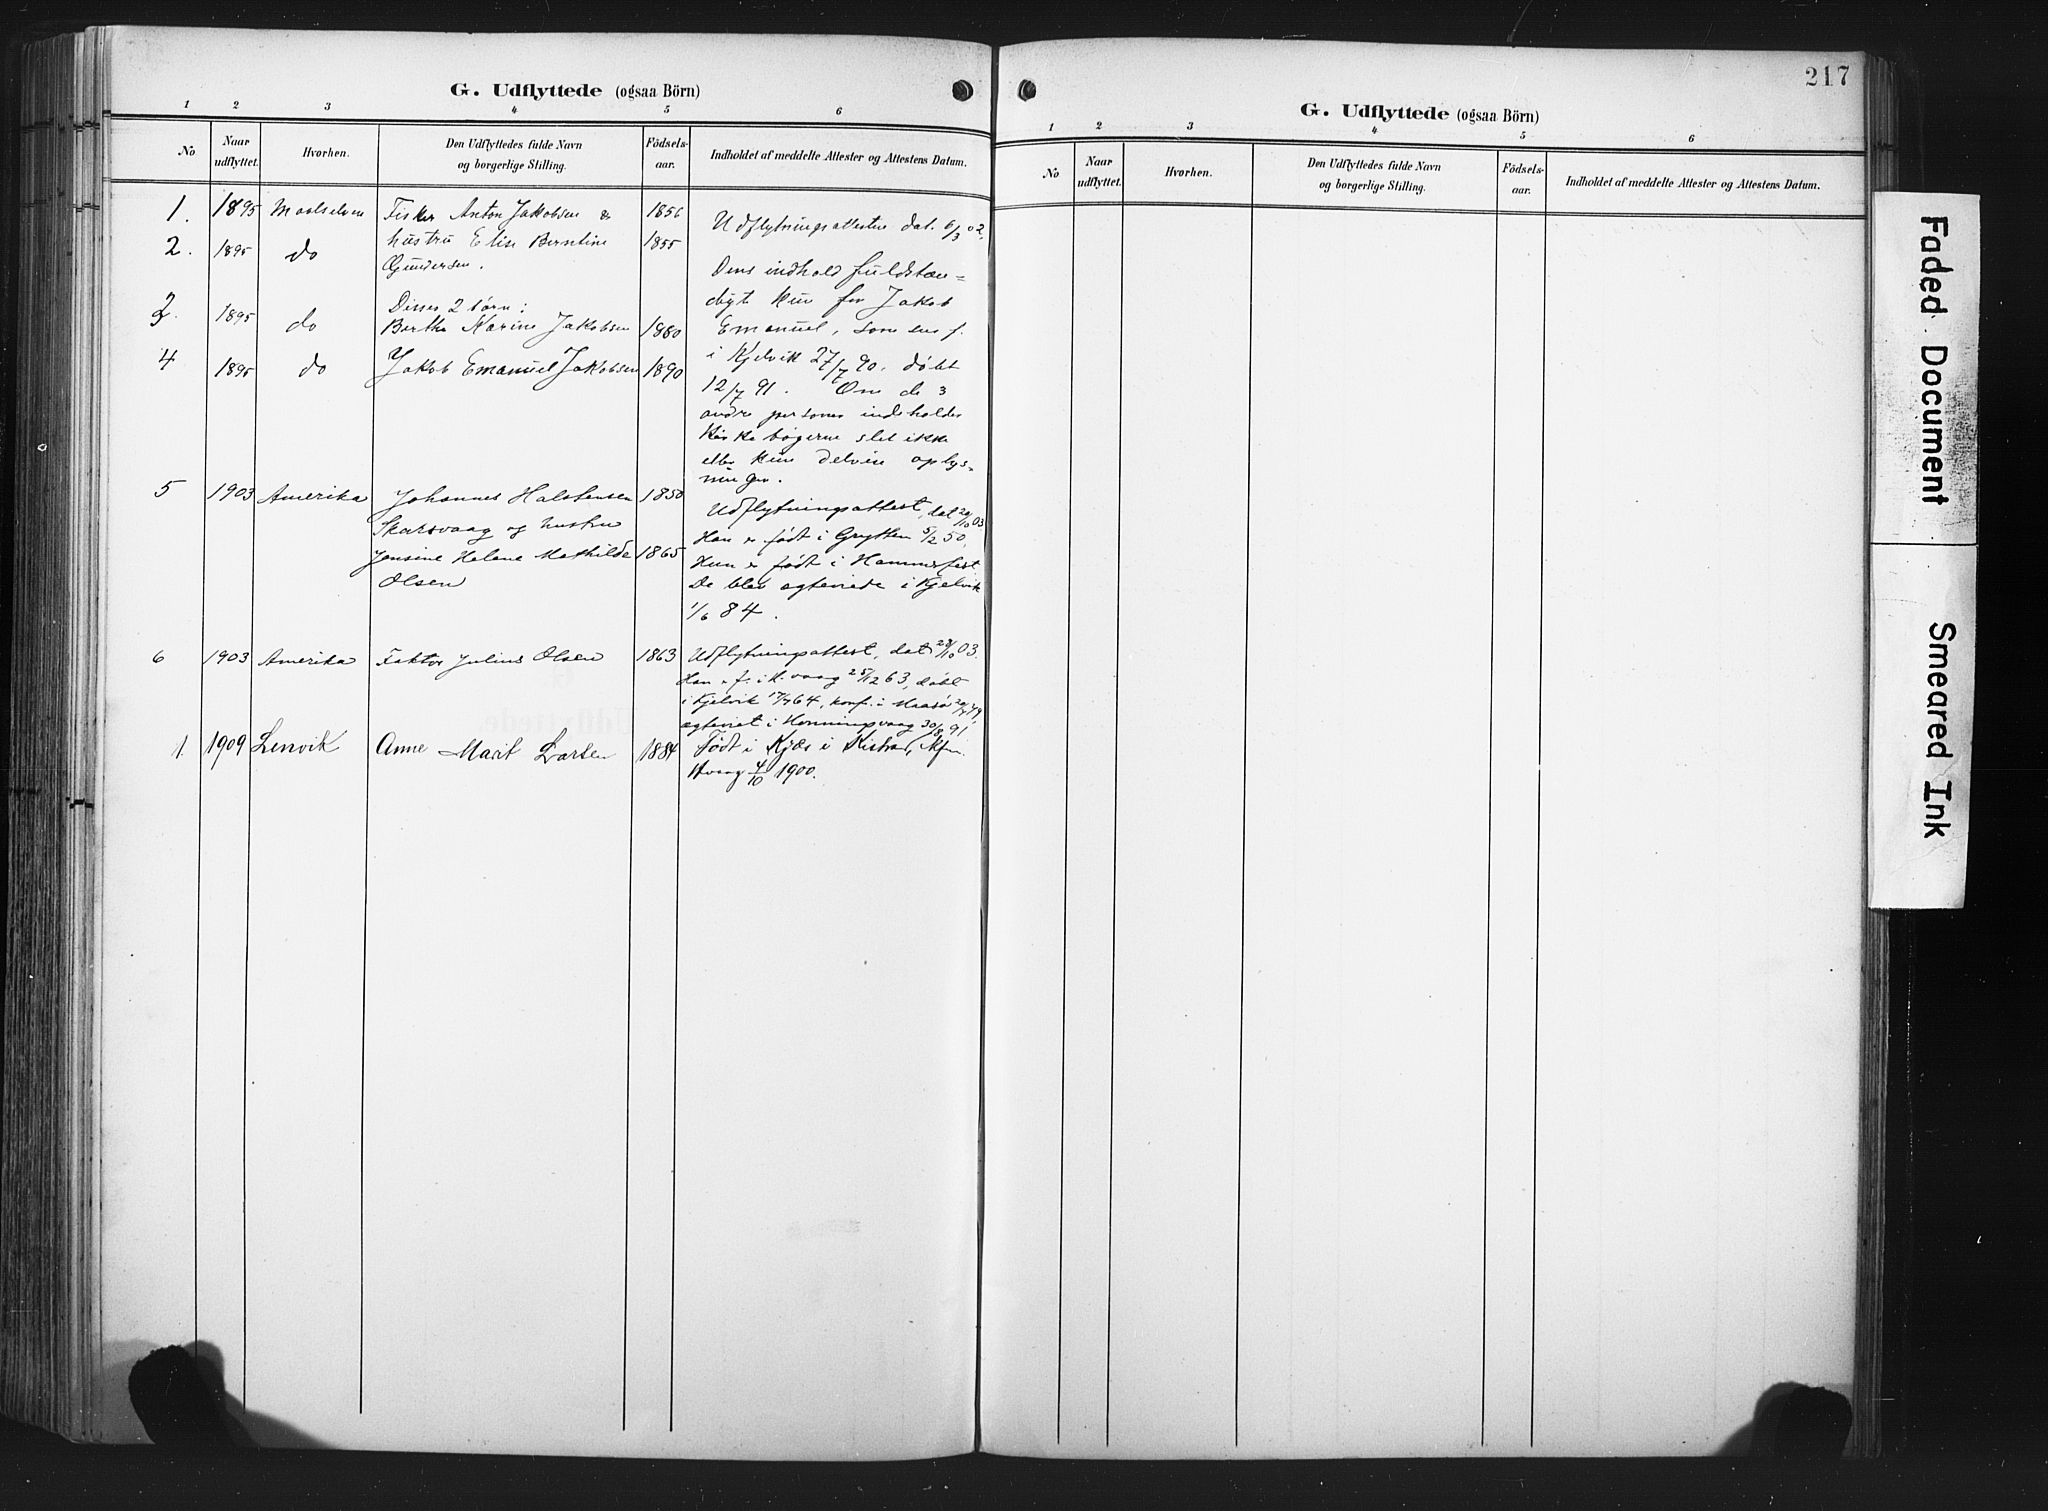 G. Udflyttede (ogsaa Börn)
1 2 3 4 5 6
No Naar udflyttet. Hvorhen. Den Udflyttedes fulde Navn og borgerlige Stilling. Födsels-aar. Indholdet af meddelte Attester og Attestens Datum.
1. 1895 Maalselven Fisker Anton Jakobsen & 1856 Udflytningsattester dat. 6/3 02.
2. 1895 do hustru Elise Berntine 1855
Gundersen. Dens indhold fuldstæn=
Disses 2 börn: digt kun for Jakob
3. 1895 do Bertha Karine Jakobsen 1880 Emanuel, som
i Kjelvik 27/7 90, døbt
4 1895 do Jakob Emanuel Jakobsen 1890 12/7 91. Om de 3
andre personer indeholder
kirkebøgerne slet ikke
eller kun delvise oplys-
ninger.
5 1903 Amerika Johannes Halstensen 1850 Udflytningsattest, dat 29/10 03
Skarsvaag og hustru Han er født i Grytten 5/2 50.
Jensine Helene Mathilde 1865 Hun er født i Hammerfest
Olsen De blev ægteviede i Kjelvik
1/6 84.
6 1903 Amerika Faktor Julius Olsen 1863 Udflytningsattest, dat 29/10 03.
Han er f. i K. vaag 25/12 63, døbt
i Kjelvik 17/7 64, konf. i Maasø
ægteviet i Honningsvaag 30/8 91
1. 1909 Lenvik Anne Marit Larsen 1884 Født i Kjæs i Kistrand, kfm.
Hvaag 4/10 1900.
217
G. Udflyttede (ogsaa Börn)
1 2 3 4 5 6
No Naar udflyttet. Hvorhen. Den Udflyttedes fulde Navn og borgerlige Stilling. Födsels-aar. Indholdet af meddelte Attester og Attestens Datum.
Faded Document
Smeared Ink